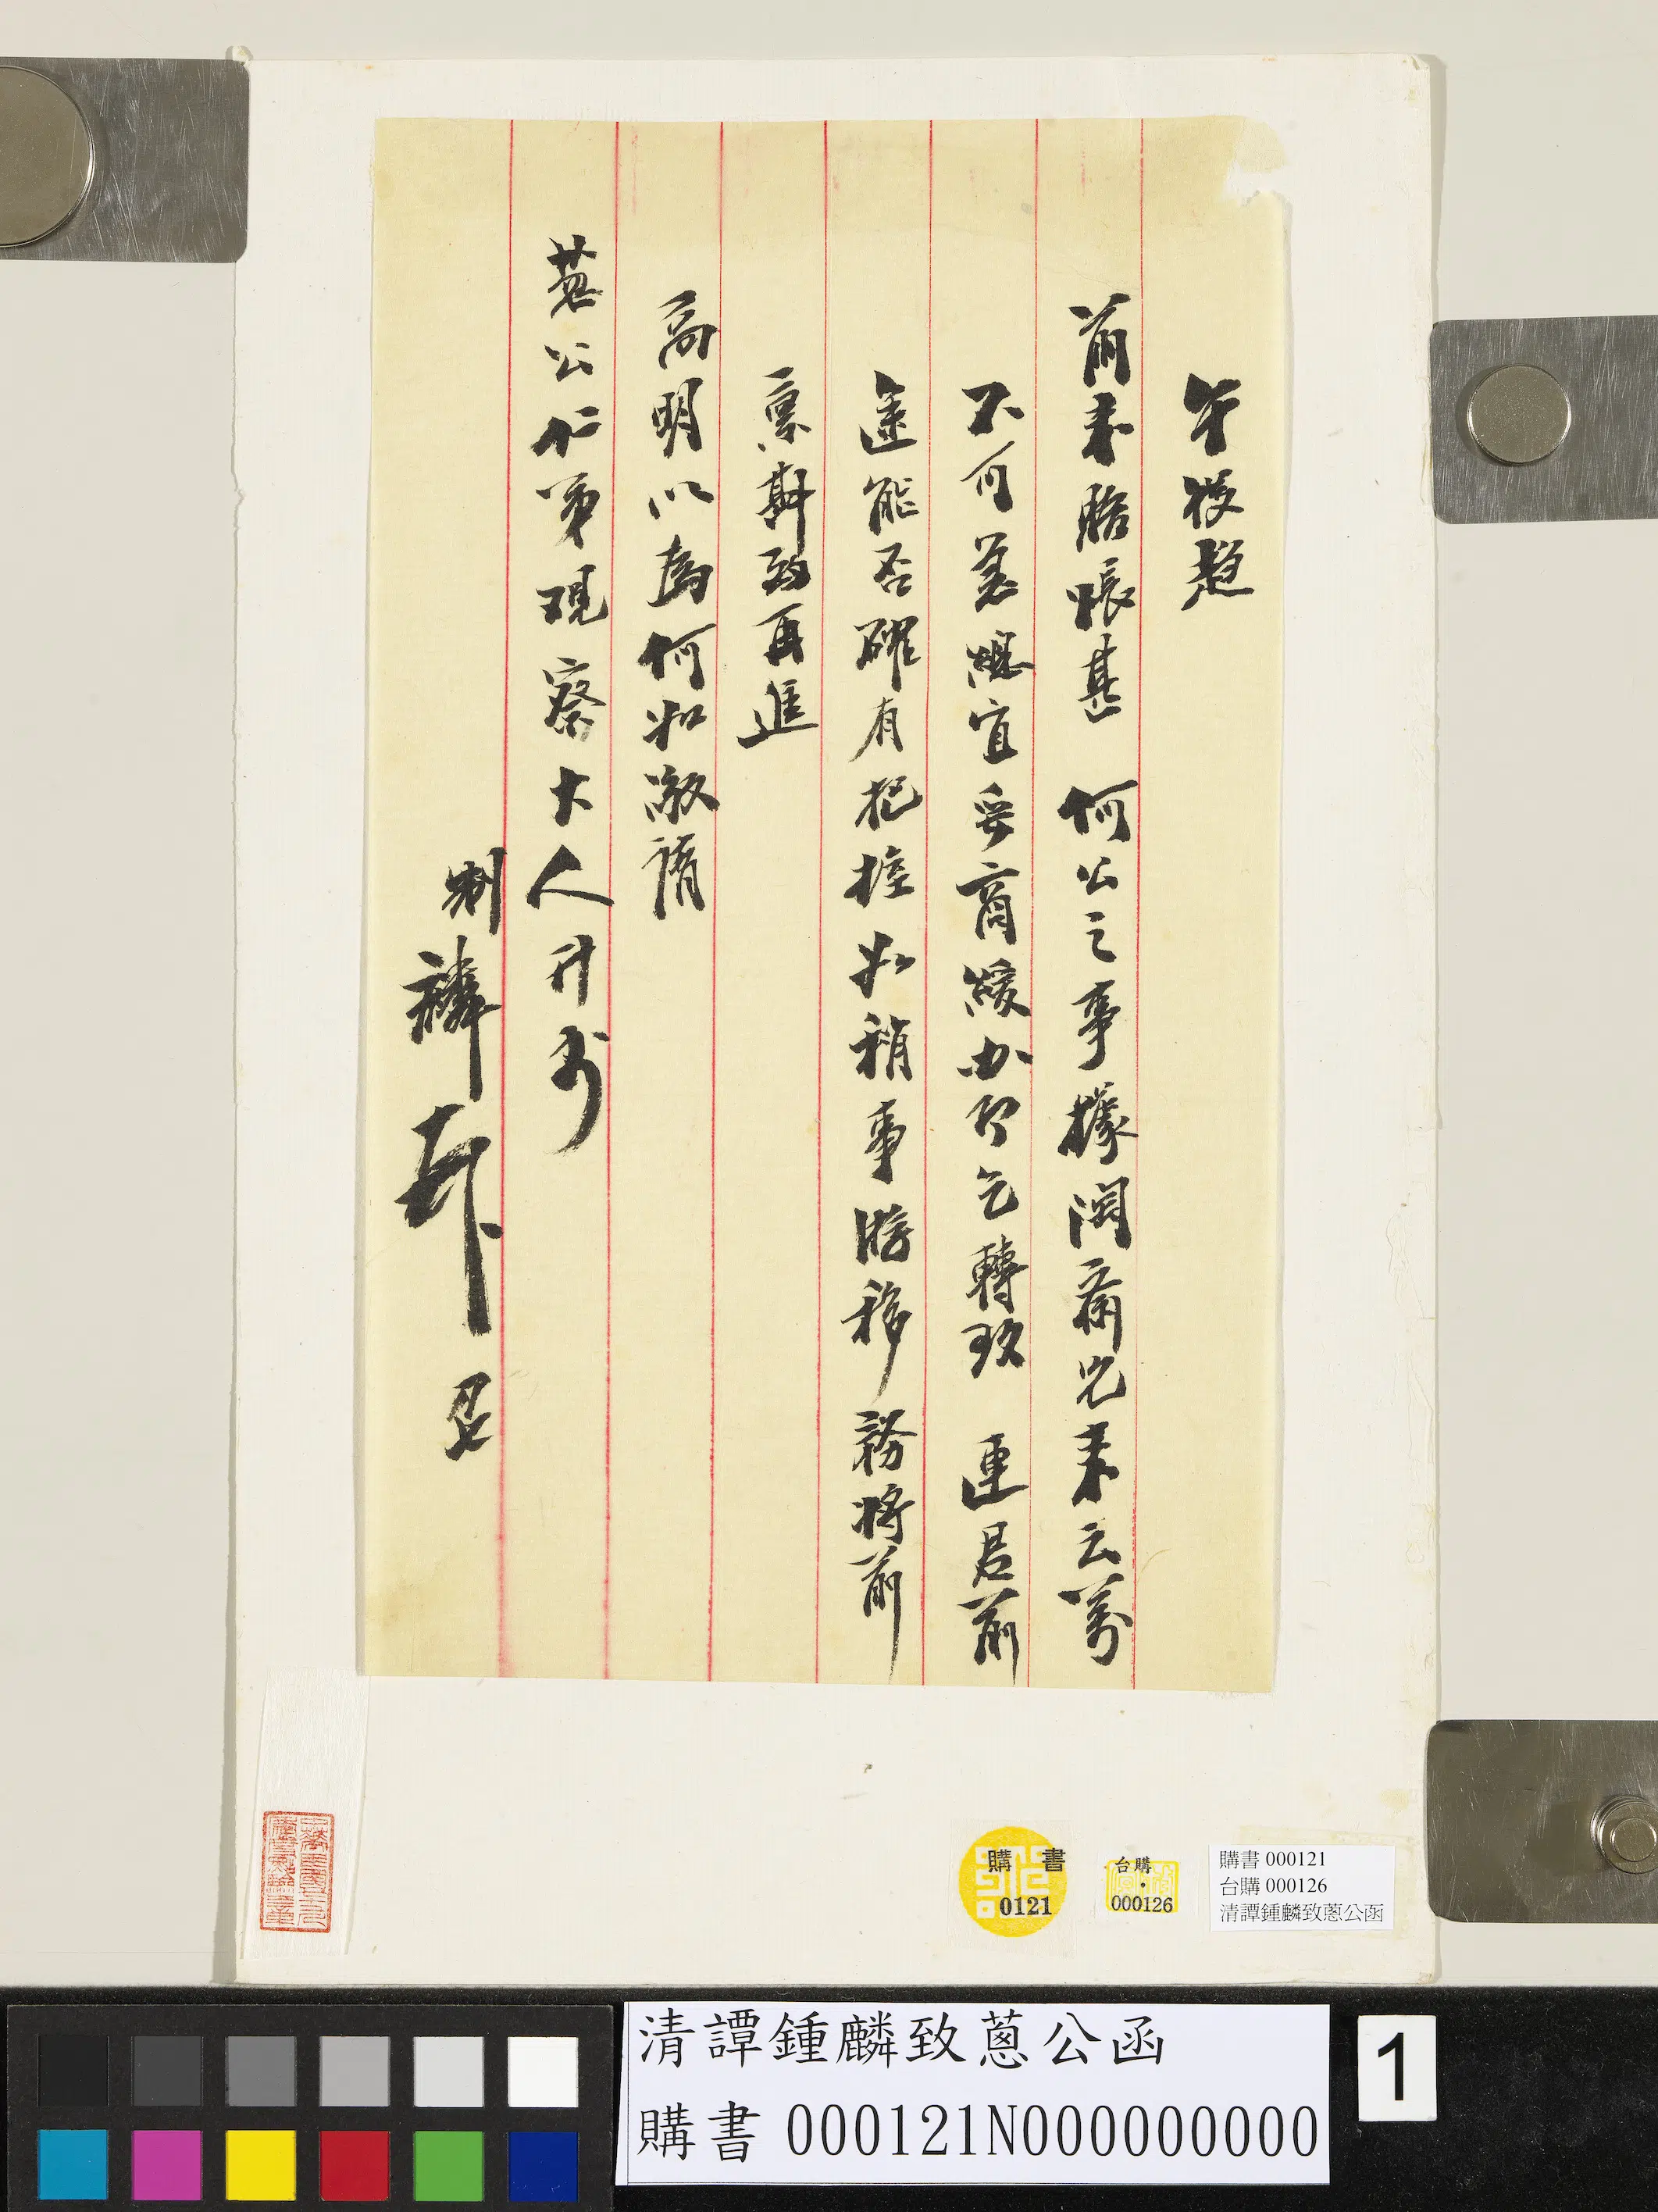 午後趨
前未晤悵甚 何公之事據潤齋兄來云萬
不可急總宜妥商緩办即乞轉致 連君前
途能否確有把握如稍事游移務將前
稟斟酌再進
高明以為何如敬請
蔥公仁弟觀察大人升安
制 麟 頓首
購書 0121
台購 000126
購書 000121
台購 000126
清譚鍾麟致蔥公函
清譚鍾麟致蔥公函
購書 000121N000000000
1